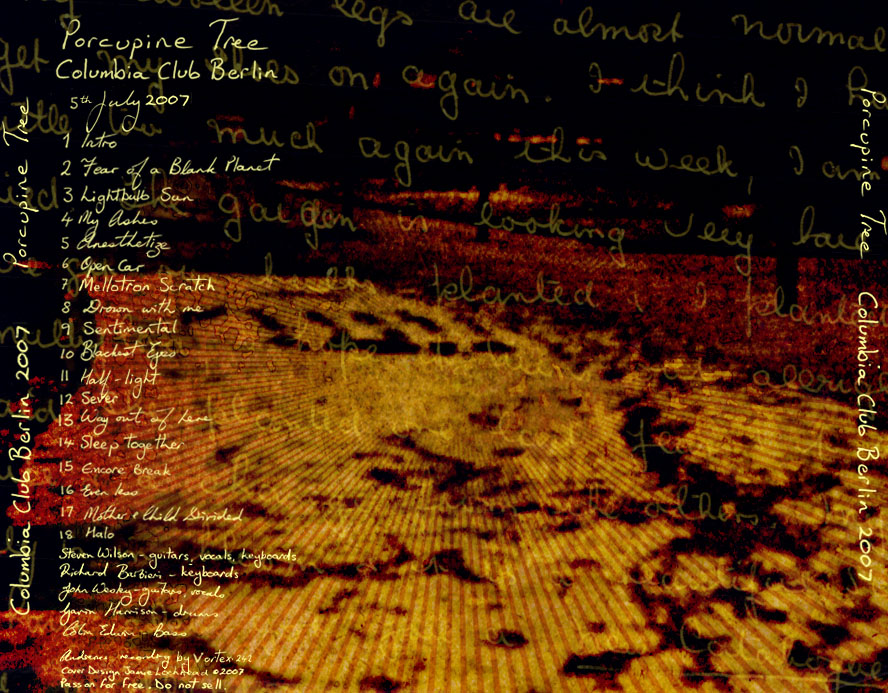 Porcupine Tree
Columbia Club Berlin
5th July 2007
1 Intro
2 Fear of a Blank Planet
3 Lightbulb Sun
4 My Ashes
5 Anesthetize
6 Open Car
7 Mellotron Scratch
8 Drown with me
9 Sentimental
10 Blackest Eyes
11 Half-light
12 Sever
13 Way out of here
14 Sleep together
15 Encore Break
16 Even less
17 Mother & Child Divided
18 Halo
Steven Wilson - guitars, vocals, keyboards
Richard Barbieri - keyboards
John Wesley - guitars, vocals
Gavin Harrison - drums
Colin Edwin - Bass
Audience recording by Vortex-242
Cover Design Jamie Lochhead ©2007
Pass on for free. Do not sell.
Porcupine Tree Columbia Club Berlin 2007
Porcupine Tree Columbia Club Berlin 2007
between legs are almost normal
get my on again. I think I
little too much again this week, I am
garden is looking very bare
planted I planted
hope
last year
with others. I
beautiful
Catalogue